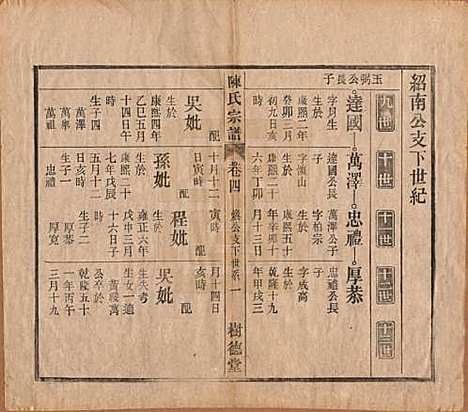 紹南公支下世紀
九世 十世 十一世 十二世 十三世
玉弼公長子
達國 萬澤 忠禮 厚恭
字月生 達國公長 萬澤公長 忠禮公長
生於 子 子 子
康熙二年 字漢山 字柏宗 字成高
癸卯二月 生於 生於 生於
初九日亥 康熙二十 康熙五十 乾隆十九
時 六年丁卯 年辛卯十 年甲戌三
陳氏宗譜 卷四 公支下世系 一 樹德堂
配 十月十二 月十三日 月十四日
吳妣 日寅時 寅時 亥時
生於 配 配 配
康熙四年 孫妣 程妣 吳妣
乙巳五月 生於 生於 生失考
十四日午 康熙二十 雍正六年 生女一適
時 七年戊辰 戊申三月 黃祿萬
生子四 五月十二 十六日子 公卒於
萬澤 日亥時 時 乾隆五十
萬祿 生子一 生子二 一年丙午
忠禮 厚恭 三月十九
厚寬